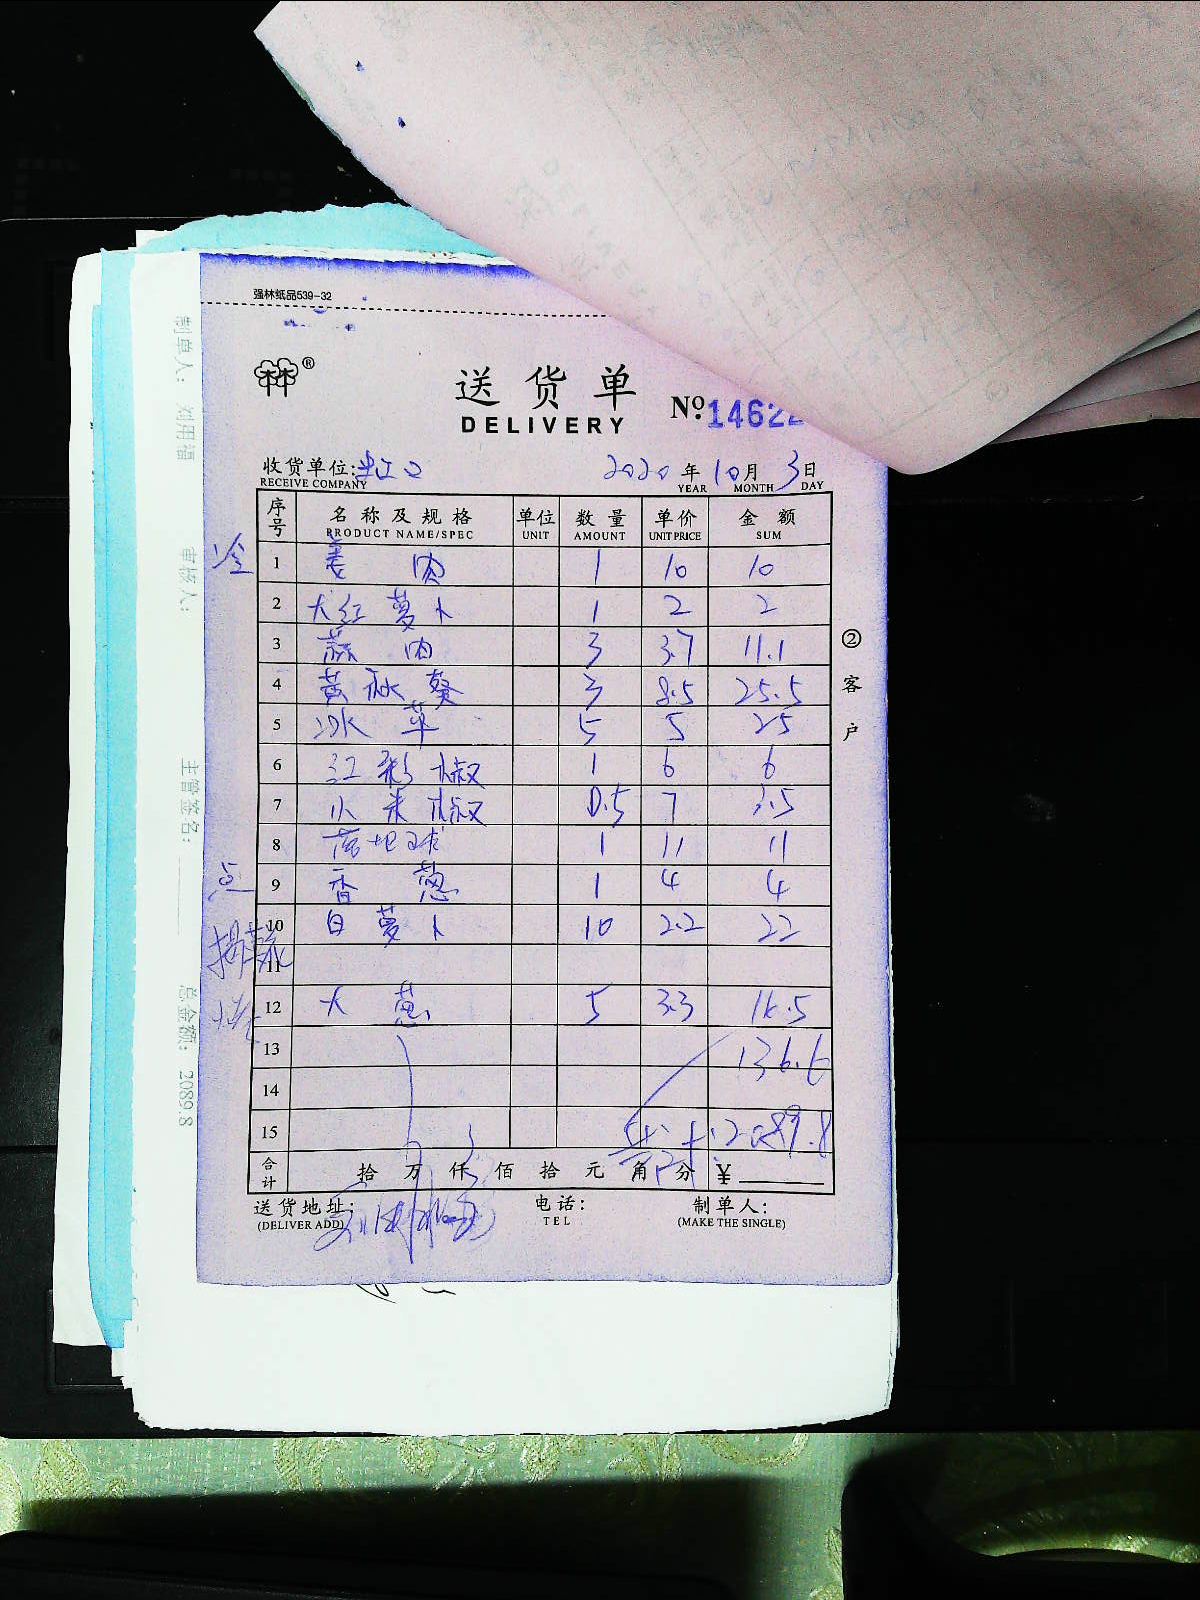 强林纸品539-32
林林®
送货单
DELIVERY
No.14622
收货单位:虹口 2020年10月3日
RECEIVE COMPANY YEAR MONTH DAY
序号 名称及规格 单位 数量 单价 金额
PRODUCT NAME/SPEC UNIT AMOUNT UNIT PRICE SUM
冷 1 姜肉 1 10 10
2 大红萝卜 1 2 2
3 蒜肉 3 3.7 11.1
4 黄秋葵 3 8.5 25.5
5 冰草 5 5 25
6 红彩椒 1 6 6
7 小米椒 0.5 7 3.5
8 1 11 11
点 9 香葱 1 4 4
10 白萝卜 10 2.2 22
11
12 大葱 5 3.3 16.5
13 136.6
14
15 2089.8
合计 拾万仟佰拾元角分 ¥
送货地址: 电话: 制单人:
(DELIVER ADD) TEL (MAKE THE SINGLE)
②客户
制单人: 刘用福
审核人:
主管签名:
总金额: 2089.8